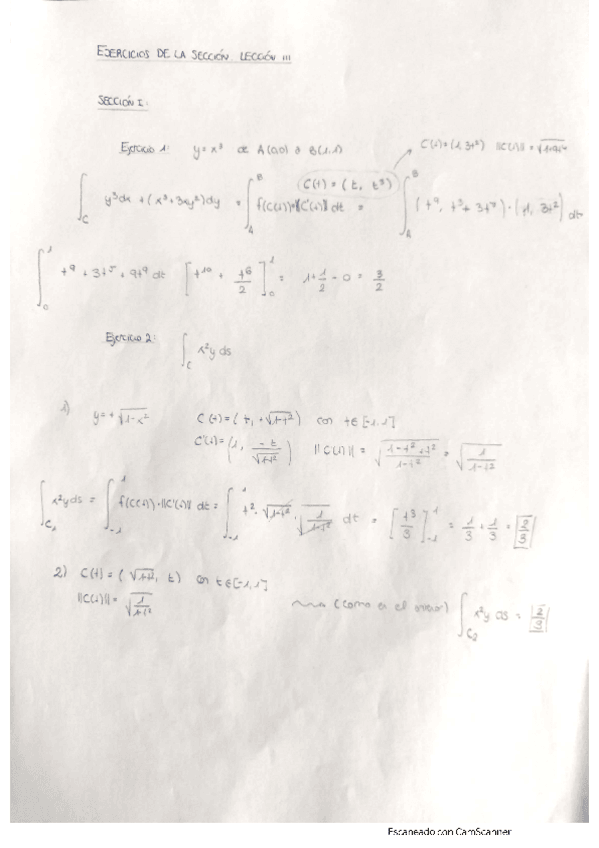 EJERCICIOS DE LA SECCIÓN LECCIÓN III
SECCIÓN I:
Ejercicio 1: y = x³ de A(0,0) a B(1,1)
C'(t) = (1, 3t²)
C(t) = (t, t³)
∫_C y³dx + (x³+3xy²)dy = ∫_A^B f(C(t))·C'(t) dt = ∫_A^B (t⁹, t³+3t⁷)·(1, 3t²) dt
∫_0^1 t⁹ + 3t⁵ + 9t⁹ dt [t¹⁰ + t⁶/2]_0^1 = 1 + 1/2 - 0 = 3/2
Ejercicio 2: ∫_C x²y ds
1) y = +√(1-x²) C(t) = (t, +√(1-t²)) con t∈[-1,1]
C'(t) = (1, -t/√(1-t²)) ||C'(t)|| = √((1-t²+t²)/(1-t²)) = √(1/(1-t²))
∫_C₁ x²y ds = ∫_-1^1 f(C(t))·||C'(t)|| dt = ∫_-1^1 t²·√(1-t²)·√(1/(1-t²)) dt = [t³/3]_-1^1 = 1/3 + 1/3 = 2/3
2) C(t) = (√(1-t²), t) con t∈[-1,1]
||C'(t)|| = √(1/(1-t²)) (como en el anterior) ∫_C₂ x²y ds = 2/3
Escaneado con CamScanner